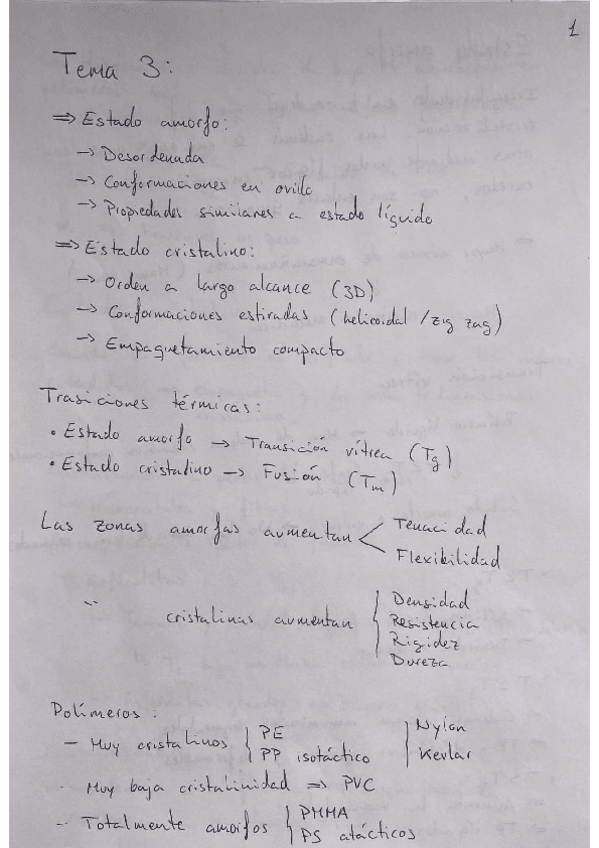 1
Tema 3:
⇒ Estado amorfo:
→ Desordenada
→ Conformaciones en ovillo
→ Propiedades similares a estado líquido
⇒ Estado cristalino:
→ Orden a largo alcance (3D)
→ Conformaciones estiradas (helicoidal / zig zag)
→ Empaquetamiento compacto
Trasiciones térmicas:
• Estado amorfo → Transición vítrea (Tg)
• Estado cristalino → Fusión (Tm)
Las zonas amorfas aumentan < Tenacidad
Flexibilidad
" cristalinas aumentan { Densidad
Resistencia
Rigidez
Dureza
Polímeros:
- Muy cristalinos { PE { Nylon
PP isotáctico Kevlar
- Muy baja cristalinidad ⇒ PVC
- Totalmente amorfos { PMMA
PS atácticos